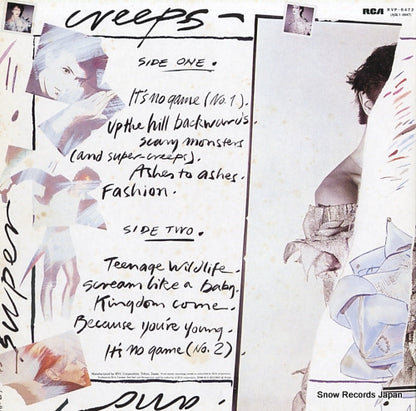 creeps -
RCA RVP-6472
SIDE ONE.
It's no game (No. 1).
Up the hill backwards.
Scary monsters
(and super-creeps).
Ashes to ashes.
Fashion.
SIDE TWO.
Teenage Wildlife.
Scream like a Baby.
Kingdom come.
Because you're Young.
It's no game (No. 2)
super
Snow Records Japan